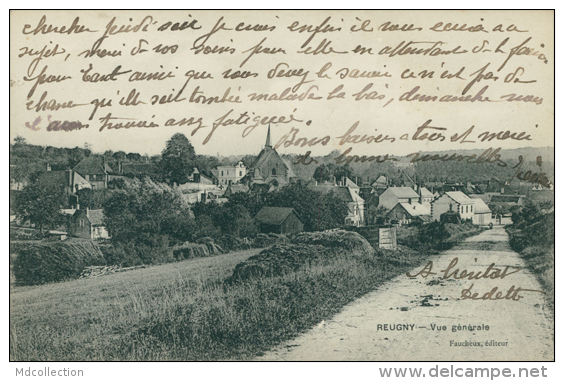 chercher jeudi soir je crois enfin il vous écrira au
sujet, merci de vos soins pour elle en attendant de la faire
pour tant aimée que vous devez le savoir ce n'est pas de
chance qu'elle soit tombée malade là bas, demanche nous
l'avons trouvée assez fatiguée.
Bons baisers à tous et merci
de bonne nouvelle
A bientôt
Dedette
REUGNY — Vue générale
Faucheux, éditeur
Mdcollection
www.delcampe.net